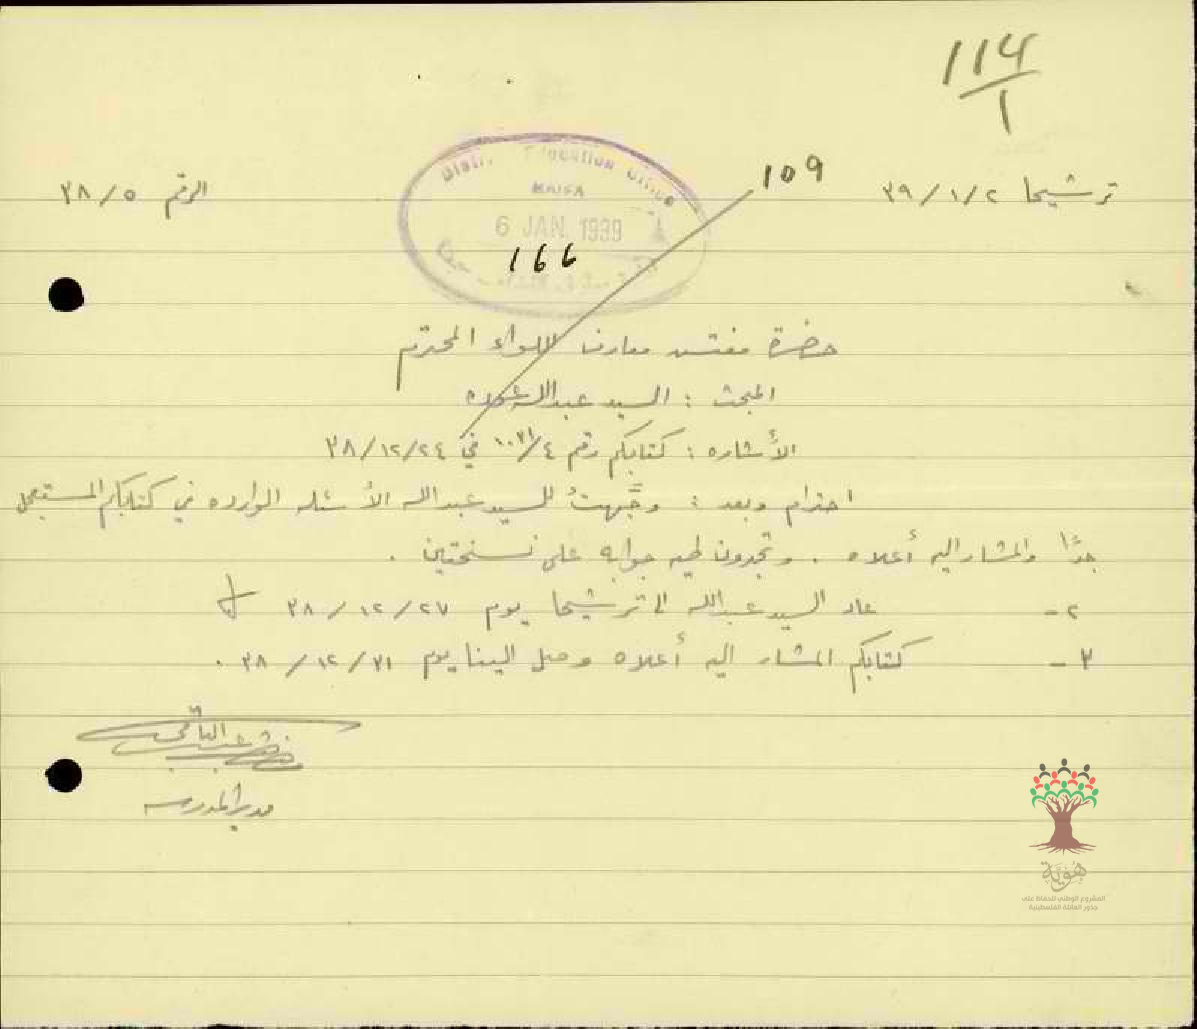 114
1
109
ترشيحا ٣٩/١/٢
الرقم ٣٨/٥
District Education Office
HAIFA
6 JAN. 1939
166
حضرة مفتش معارف اللواء المحترم
المبحث : السيد عبدالله
الأشاره : كتابكم رقم ١٠٣١/٤ في ٣٨/١٢/٢٤
احترام وبعد : وجَّهتُ للسيد عبدالله الأسئله الوارده في كتابكم المستعجل
جدًا والمشار اليه أعلاه . وتجدون طيه جوابه على نسختين .
٢- عاد السيد عبدالله الى ترشيحا يوم ٣٨/١٢/٢٧
٣- كتابكم المشار اليه أعلاه وصل الينا يوم ٣٨/١٢/٣١ .
مدير المدرسه
هُوِيَّة
المشروع الوطني للحفاظ على
جذور العائلة الفلسطينية